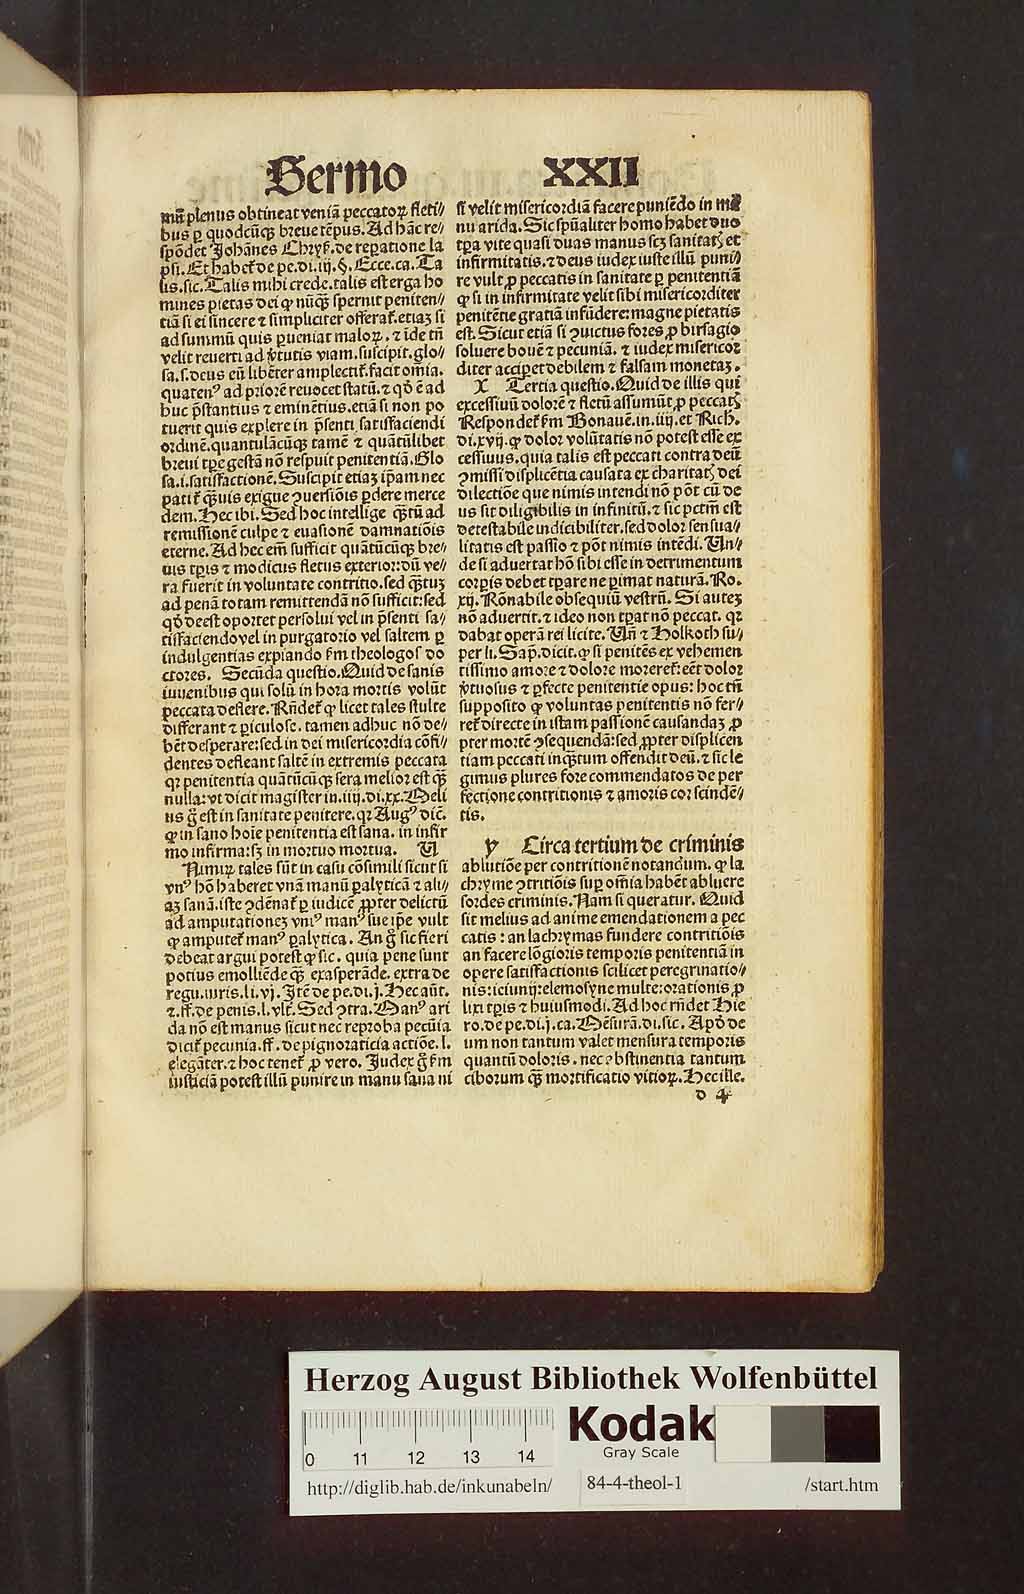 Sermo XXII
mū plenus obtineat veniā peccatoꝝ fleti⸗
bus ꝑ quodcūqꝫ breue tēpus. Ad hāc re⸗
spōdet Johānes Chrẏs. de reꝑatione la
psi. Et habet̄ de pe. di. iij. §. Ecce. ca. Ta
lis. sic. Talis mihi crede. talis est erga ho
mines pietas dei ꝙ nūqꝫ spernit peniten⸗
tiā si ei sincere ⁊ simpliciter offerat̄. etiaꝫ si
ad summū quis ꝑueniat maloꝝ. ⁊ īde tn̄
velit reuerti ad v̓tutis viam. suscipit. glo⸗
sa. s. deus eū libēter amplectit̄. facit om̄ia.
quatenꝰ ad priorē reuocet statū. ⁊ qd̓ ē ad
huc p̄stantius ⁊ eminētius. etiā si non po
tuerit quis explere in p̄senti satisfaciendi
ordinē. quantulācūqꝫ tamē ⁊ quātūlibet
breui tꝑe gestā nō respuit penitentiā. Glo
sa. i. satisfactionē. Suscipit etiaꝫ ip̄am nec
patit̄ qꝫuis exigue ꝯuersiōis ꝑdere merce
dem. Hec ibi. Sed hoc intellige qꝫtū ad
remissionē culpe ⁊ euasionē damnatiōis
eterne. Ad hec em̄ sufficit quātūcūqꝫ bre⸗
uis tꝑis ⁊ modicus fletus exterior: dū ve⸗
ra fuerit in voluntate contritio. sed qꝫtuꝫ
ad penā totam remittendā nō sufficit: sed
qd̓ deest oportet persolui vel in p̄senti sa⸗
tisfaciendo vel in purgatorio vel saltem ꝑ
indulgentias expiando s̄m theologos do
ctores. Secūda questio. Quid de sanis
iuuenibus qui solū in hora mortis volūt
peccata deflere. Rn̄det̄ ꝙ licet tales stulte
differant ⁊ ꝑiculose. tamen adhuc nō de⸗
bēt desperare: sed in dei misericordia cōfi⸗
dentes defleant saltē in extremis peccata
qꝛ penitentia quātūcūqꝫ sera melior est qꝫ
nulla: vt dicit magister in. iiij. di. xx. Meli
us g̓ est in sanitate penitere. qꝛ Augꝰ dic̄.
ꝙ in sano hoīe penitentia est sana. in infir
mo infirma: sꝫ in mortuo mortua. U
Nimiꝝ tales sūt in casu cōsimili sicut si
vnꝰ hō haberet vnā manū ꝑalyticā ⁊ ali⸗
aꝫ sanā. iste ꝯdēnat̄ ꝑ iudicē ꝓpter delictū
ad amputationeꝫ vniꝰ manꝰ sue ip̄e vult
ꝙ amputet̄ manꝰ ꝑalytica. An g̓ sic fieri
debeat argui potest ꝙ sic. quia pene sunt
potius emolliēde qꝫ exasperāde. extra de
regu. iuris. li. vj. Itē de pe. di. j. Hec aūt.
⁊. ff. de penis. l. vlt̄. Sed ꝯtra. Manꝰ ari
da nō est manus sicut nec reproba pecūia
dicit̄ pecunia. ff. de pignoraticia actiōe. l.
elegāter. ⁊ hoc tenet̄ ꝓ vero. Judex g̓ s̄m
iusticiā potest illū punire in manu sana ni
si velit misericordiā facere puniēdo in ma
nu arida. Sic spūaliter homo habet duo
tꝑa vite quasi duas manus scꝫ sanitatꝭ et
infirmitatis. ⁊ deus iudex iuste illū puni⸗
re vult ꝓ peccatis in sanitate ꝑ penitentiā
ꝙ si in infirmitate velit sibi misericorditer
penitētie gratiā infūdere: magne pietatis
est. Sicut etiā si ꝯuictus fores ꝓ birsagio
soluere bouē ⁊ pecuniā. ⁊ iudex misericor
diter acciperet debilem ⁊ falsam monetaꝫ.
X Tertia questio. Quid de illis qui
excessiuū dolorē ⁊ fletū assumūt ꝓ peccatꝭ
Respondet̄ s̄m Bonauē. in. iiij. et Rich.
di. xvij. ꝙ dolor volūtatis nō potest esse ex
cessiuus. quia talis est peccati contra deū
ꝯmissi displicētia causata ex charitatꝭ dei
dilectiōe que nimis intendi nō pōt cū de
us sit diligibilis in infinitū. ⁊ sic pctm̄ est
detestabile indicibiliter. sed dolor sensua⸗
litatis est passio ⁊ pōt nimis intēdi. Un⸗
de si aduertat hō sibi esse in detrimentum
corꝑis debet tꝑare ne ꝑimat naturā. Ro.
xij. Rōnabile obsequiū vestrū. Si auteꝫ
nō aduertit. ⁊ ideo non tꝑat nō peccat. qꝛ
dabat operā rei licite. Un̄ ⁊ Holkoth su⸗
per li. Sap̄. dicit. ꝙ si penitēs ex vehemen
tissimo amore ⁊ dolore moreret̄: eēt dolor
v̓tuosus ⁊ ꝑfecte penitentie opus: hoc tn̄
supposito ꝙ voluntas penitentis nō fer⸗
ret̄ directe in istam passionē causandaꝫ ꝓ
pter mortē ꝯsequendā: sed ꝓpter displicen
tiam peccati inqꝫtum offendit deū. ⁊ sic le
gimus plures fore commendatos de per
fectione contritionis ⁊ amoris cor scindē⸗
tis.
Y Circa tertium de criminis
ablutiōe per contritionē notandum. ꝙ la
chryme ꝯtritiōis suꝑ om̄ia habēt abluere
sordes criminis. Nam si queratur. Quid
sit melius ad anime emendationem a pec
catis: an lachrymas fundere contritiōis
an facere lōgioris temporis penitentiā in
opere satisfactionis scilicet peregrinatio⸗
nis: ieiunij: elemosyne multe: orationis ꝓ
lixi tꝑis ⁊ huiusmodi. Ad hoc rn̄det Hie
ro. de pe. di. j. ca. Mēsurā. di. sic. Apd̓ de
um non tantum valet mensura temporis
quantū doloris. nec abstinentia tantum
ciborum qꝫ mortificatio vitioꝝ. Hec ille.
d 4
Herzog August Bibliothek Wolfenbüttel
0 11 12 13 14
Kodak
Gray Scale
http://diglib.hab.de/inkunabeln/ 84-4-theol-1 /start.htm